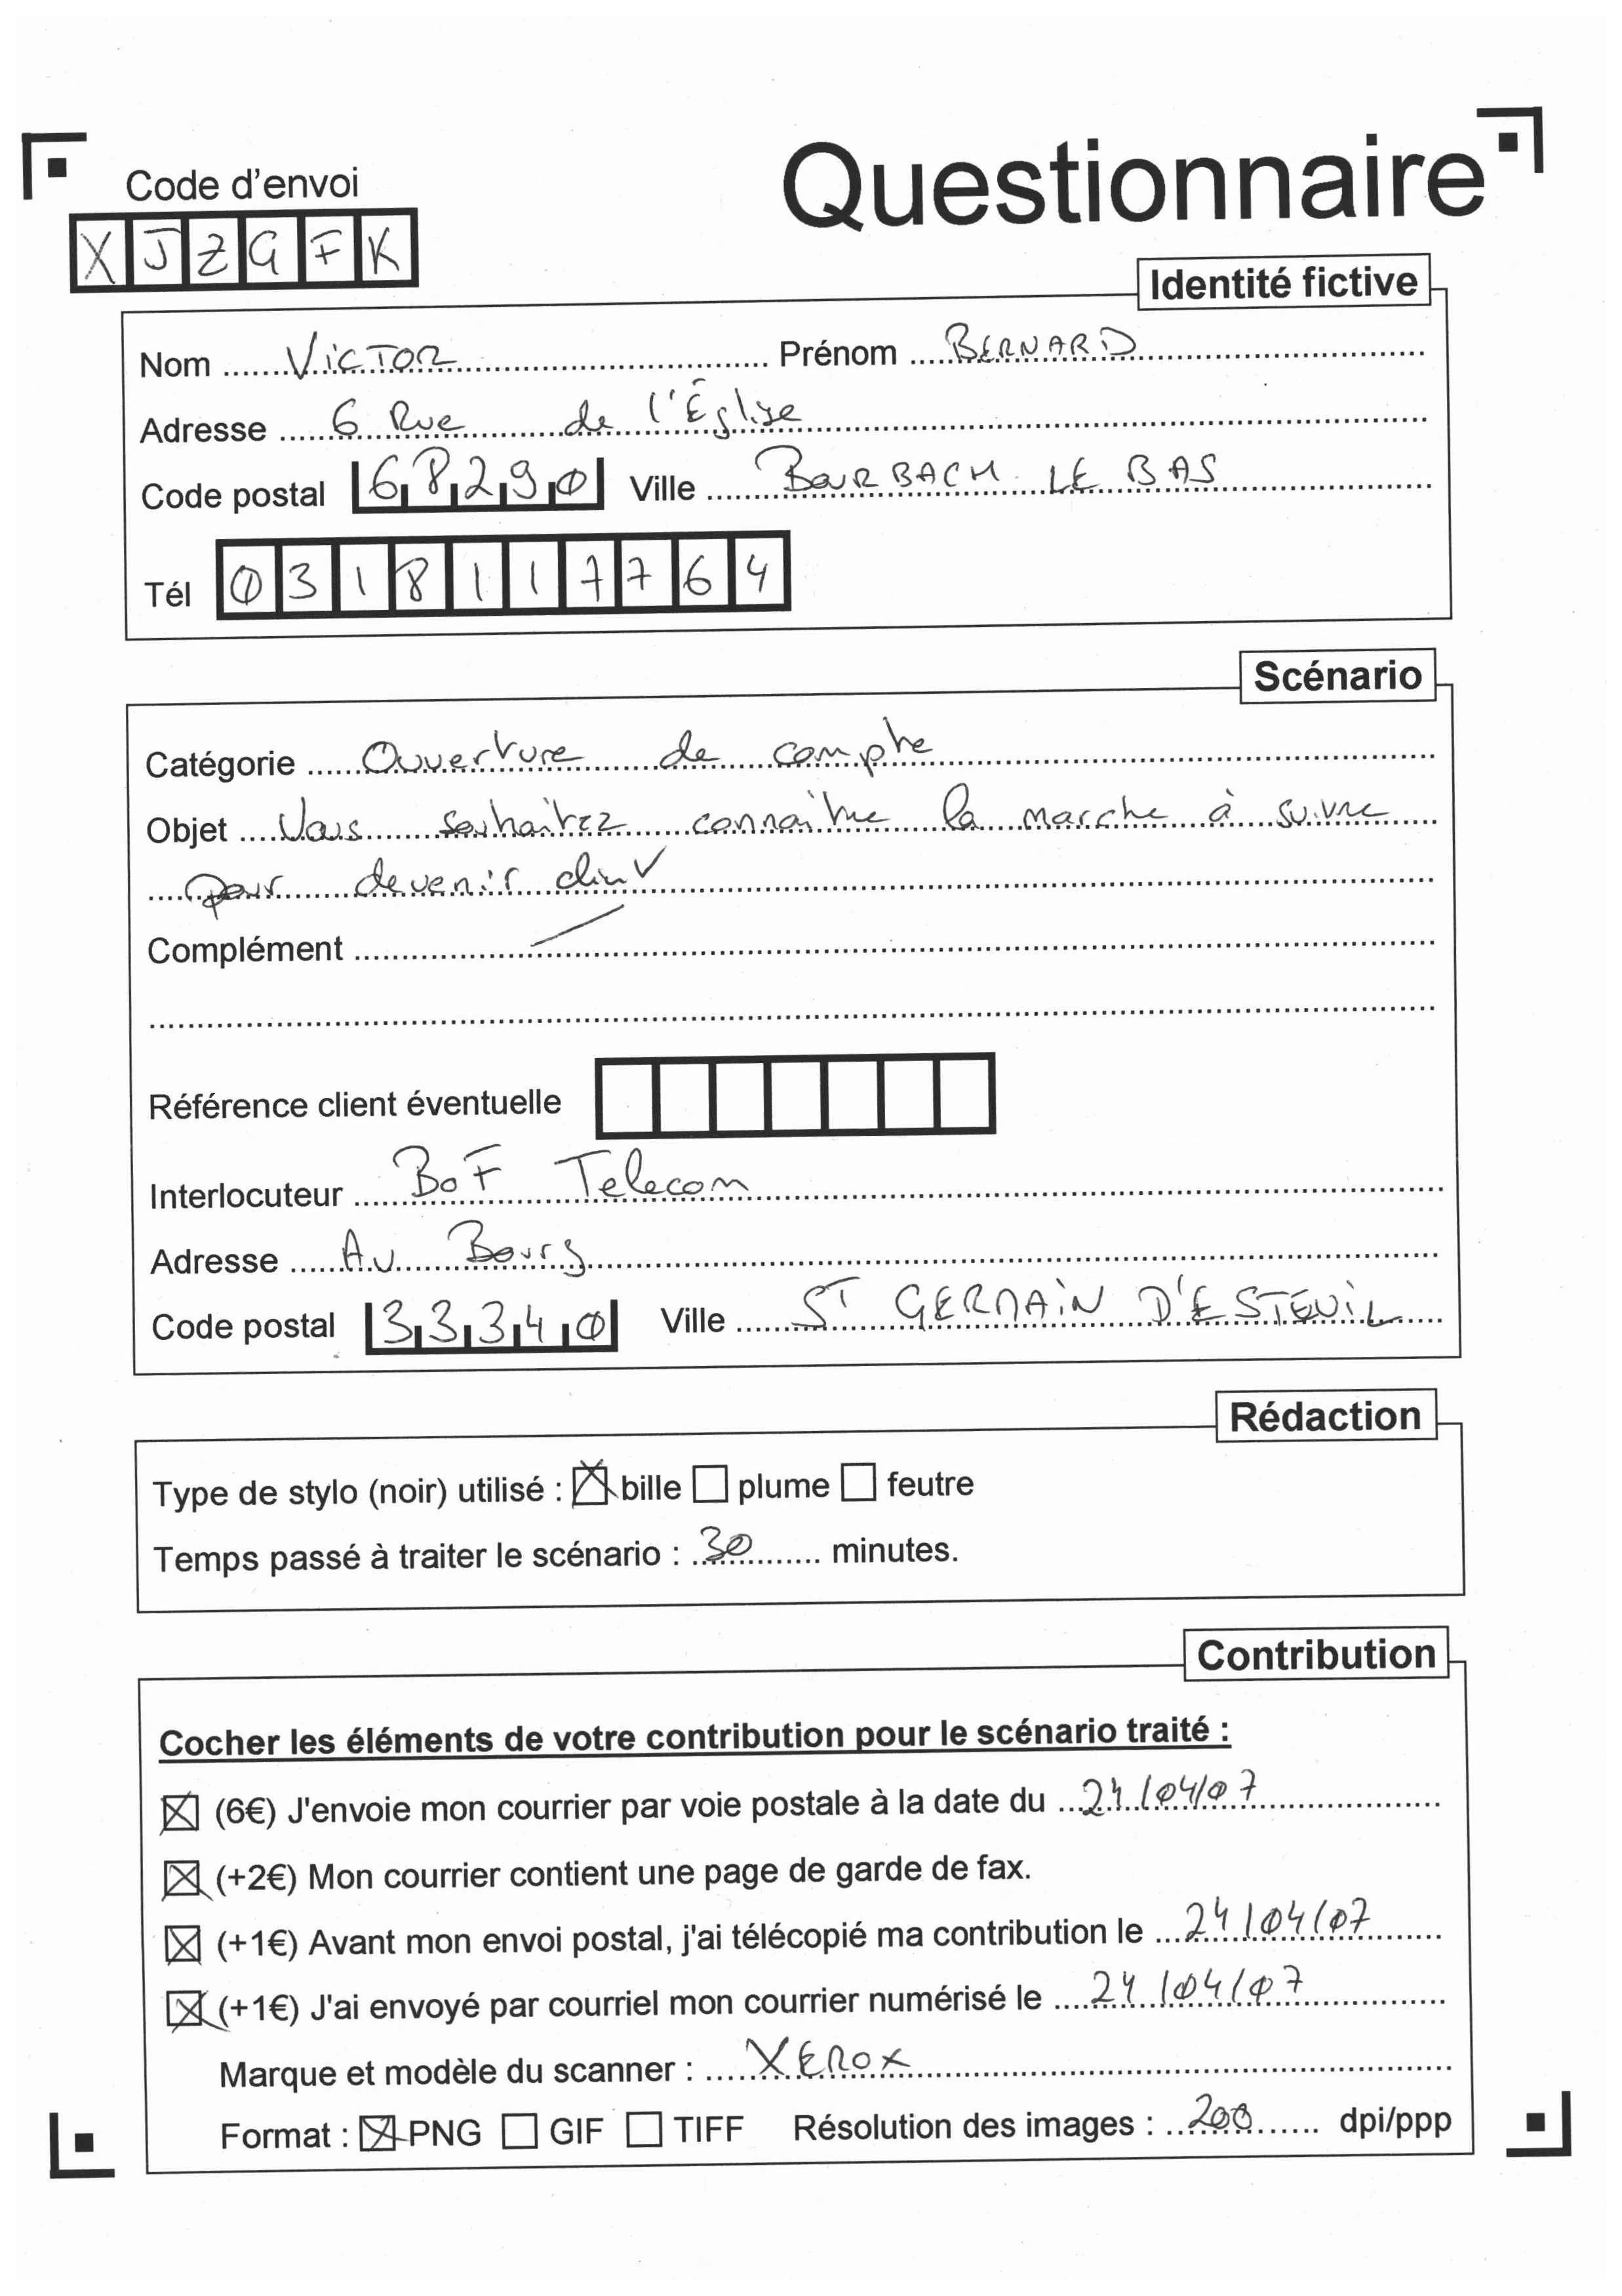 Questionnaire
Code d'envoi
XJZGFK
Identité fictive
Nom ...... VICTOR ...... Prénom ...... BERNARD ......
Adresse ...... 6 Rue de l'Église ......
Code postal 68290 Ville ...... BOURBACH LE BAS ......
Tél 0318117764
Scénario
Catégorie ...... Ouverture de compte ......
Objet ...... Vous souhaitez connaitre la marche à suivre
pour devenir client
Complément ...... / ......
Référence client éventuelle
Interlocuteur ...... BOF Telecom ......
Adresse ...... Au Bourg ......
Code postal 33340 Ville ...... ST GERMAIN D'ESTEUIL ......
Rédaction
Type de stylo (noir) utilisé : ☒ bille ☐ plume ☐ feutre
Temps passé à traiter le scénario : 30 minutes.
Contribution
Cocher les éléments de votre contribution pour le scénario traité :
☒ (6€) J'envoie mon courrier par voie postale à la date du 24/04/07
☒ (+2€) Mon courrier contient une page de garde de fax.
☒ (+1€) Avant mon envoi postal, j'ai télécopié ma contribution le 24/04/07
☒ (+1€) J'ai envoyé par courriel mon courrier numérisé le 24/04/07
Marque et modèle du scanner : XEROX
Format : ☒ PNG ☐ GIF ☐ TIFF Résolution des images : 200 dpi/ppp